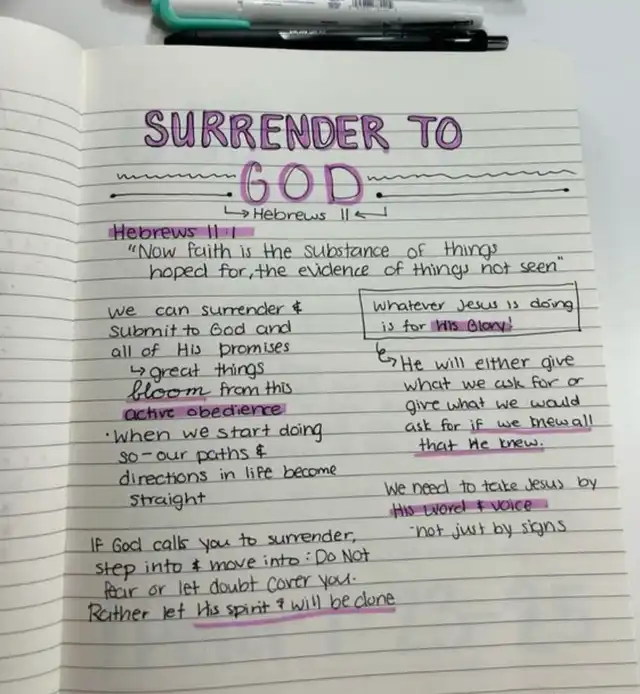 SURRENDER TO
GOD
↳Hebrews 11↲
Hebrews 11:1
"Now faith is the substance of things
hoped for, the evidence of things not seen"
we can surrender &
submit to God and
all of His promises
↳ great things
bloom from this
active obedience
· when we start doing
so - our paths &
directions in life become
straight
whatever Jesus is doing
is for His Glory!
↳ He will either give
what we ask for or
give what we would
ask for if we knew all
that He knew.
We need to take Jesus by
His word & voice
- not just by signs
If God calls you to surrender,
step into & move into: Do Not
fear or let doubt cover you.
Rather let His spirit & will be done